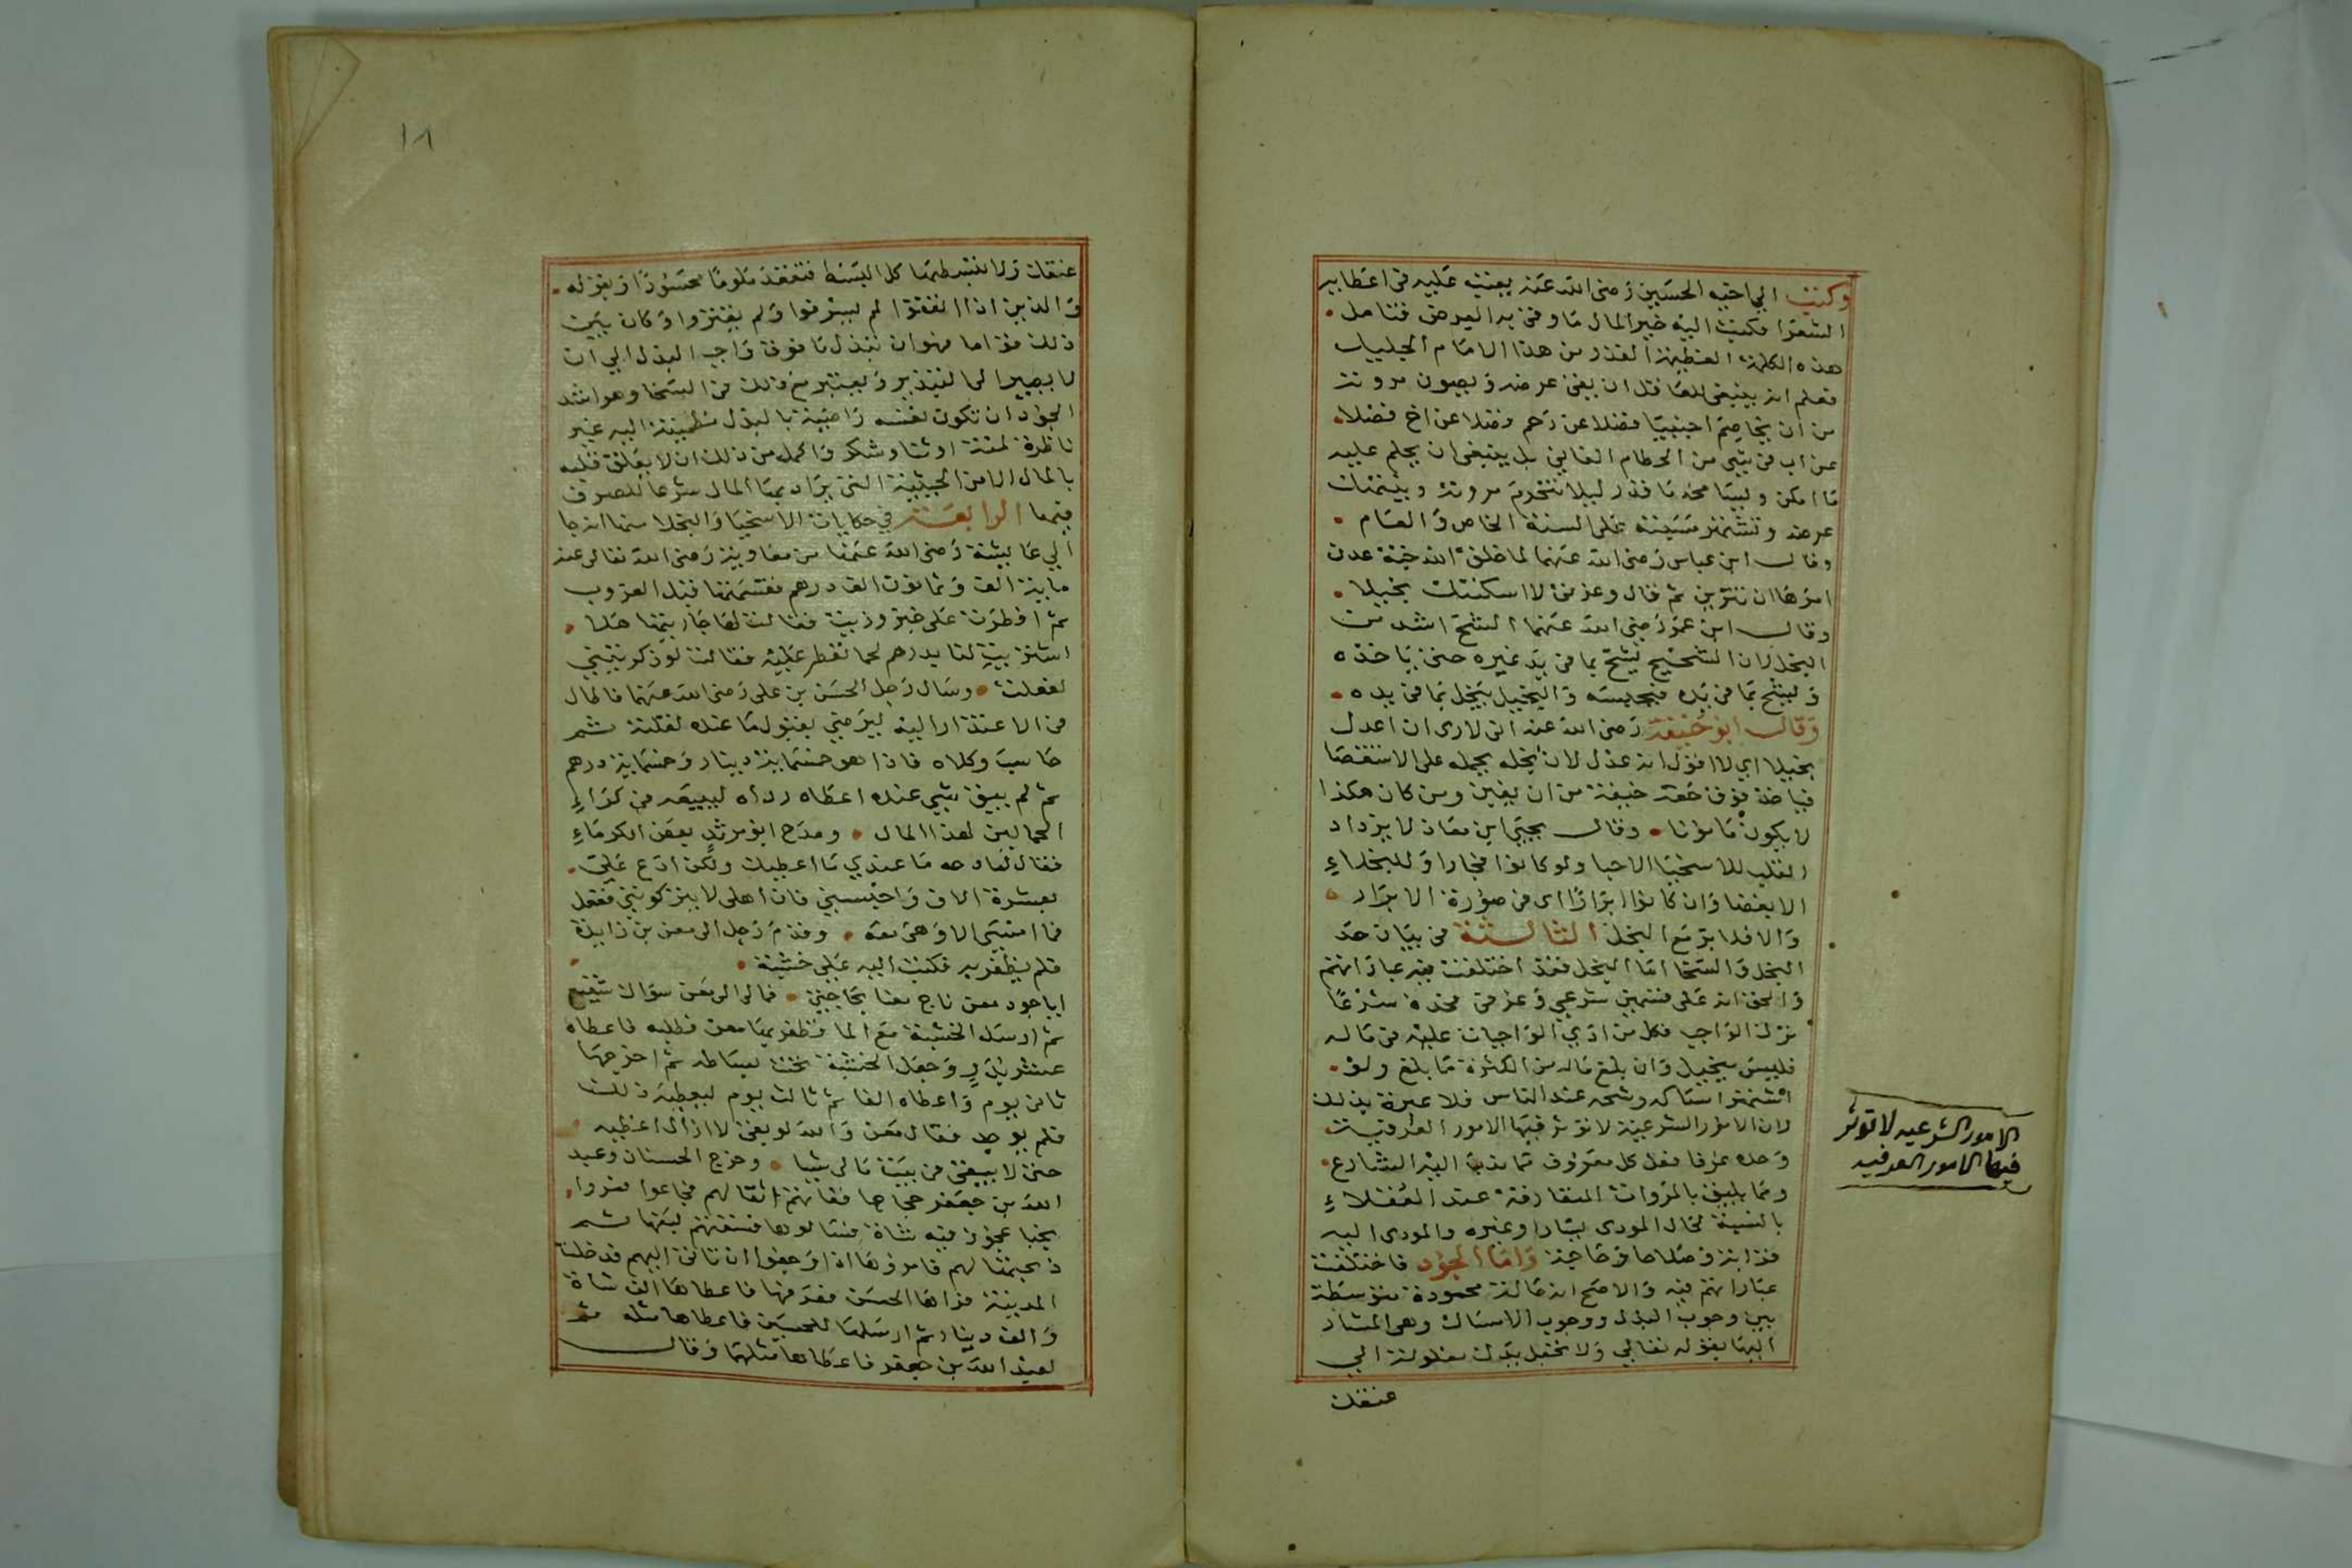 وكتب الي اخيه الحسين رضى الله عنه يعتب عليه فى اعطايه
الشعرا فكتب اليه خير المال ما وقى به العرض فتامل
هذه الكلمة العظيمة القدر من هذا الامام الجليل
فعلم انه ينبغى للعاقل ان يقى عرضه ويصون مروته
من ان يخاصم اجنبيا فضلا عن رحم وفضلا عن اخ فضلا
عن اب فى شى من الحطام الفانى بل ينبغى ان يحلم عليه
ما امكن وليسامحه ما قدر ليلا تنخرم مروته وينتهك
عرضه وتشتهر مسبته على السنة الخاص والعام
وقال ابن عباس رضى الله عنهما لما خلق الله جنة عدن
امرها ان تتزين ثم قال وعزتى لا اسكنتك بخيلا
وقال ابن عمر رضى الله عنهما الشح اشد من
البخل لان الشحيح يشح بما فى يد غيره حتى ياخذه
ويشح بما فى يده فيحبسه والبخيل يبخل بما فى يده
وقال ابو حنيفة رضى الله عنه انى لا ارى ان اعدل
بخيلا اي لا اقول انه عدل لان بخله يحمله على الاستقصا
فياخذ فوق حقه خيفة من ان يغبن ومن كان هكذا
لا يكون مامونا وقال يحيى ابن معاذ لا يزداد
القلب للاسخيا الا حبا ولو كانوا فجارا وللبخلاء
الا بغضا وان كانوا ابرارا اى فى صورة الابرار
والا فلا بر مع البخل الثالثة فى بيان حد
البخل والسخا اما البخل فقد اختلفت فيه عباراتهم
والحق انه على قسمين شرعي وعرفى فحده شرعا
ترك الواجب فكل من ادى الواجبات عليه فى ماله
فليس ببخيل وان بلغ ماله من الكثرة ما بلغ ولو
اشتهر امساكه وشحه عند الناس فلا عبرة بذلك
لان الامور الشرعية لا توثر فيها الامور العرفية
وحده عرفا فعل كل معروف مما ندب اليه الشارع
ومما يليق بالمروات المتعارفة عند العقلاء
بالنسبة لحال المودى يسارا وغيره والمودى اليه
قرابة وصلاحا وحاجة واما الجود فاختلفت
عباراتهم فيه والاصح انه حالة محمودة متوسطة
بين وجوب البذل ووجوب الامساك وهى المشار
اليها بقوله تعالى ولا تجعل يدك مغلولة الي
عنقك
الامور الشرعيه لا توثر
فيها الامور العرفيه
١٨
عنقك ولا تبسطها كل البسط فتقعد ملوما محسورا وبقوله
والذين اذا انفقوا لم يسرفوا ولم يقتروا وكان بين
ذلك قواما فهو ان تبذل ما فوق واجب البذل الي ان
لا يصير الى التبذير ويعتبر مع ذلك فى السخا وهو اشد
الجود ان تكون نفسه راضية بالبذل مطمينة اليه غير
ناظرة لمنة او ثنا وشكر واكمل من ذلك ان لا يعلق قلبه
بالمال الا من الحيثية التى يراد بها المال شرعا للصرف
فيها الرابعة في حكايات الاسخيا والبخلا منها انه جا
الي عايشة رضى الله عنها من معاوية رضى الله تعالى عنه
ماية الف وثمانون الف درهم فقسمتها قبل الغروب
ثم افطرت على خبز وزيت فقالت لها جاريتها هلا
اشتريت لنا بدرهم لحما نفطر عليه فقالت لو ذكرتيني
لفعلت وسال رجل الحسن بن على رضى الله عنهما فاطال
فى الاعتذار اليه ليرضى بقبول ما عنده لقلته ثم
حاسب وكلاه فاذا هو خمسماية دينار وخمسماية درهم
ثم لم يبق شي عنده اعطاه رداه ليبيعه فى كراء
الحمالين لهذا المال ومدح ابو مرثد بعض الكرماء
فقال لمادحه ما عندي ما اعطيك ولكن ادع على
بعشرة الاف واحبسني فان اهلى لا يتركونني ففعل
فما امسى الا وهى معه وقدم رجل الى معن بن زايدة
فلم يظفر به فكتب اليه على خشبة
ايا جود معن ناج معنا بحاجتى فمالى الى معن سواك شفيع
ثم ارسل الخشبة مع الما فظفر بها معن فطلبه فاعطاه
عشر بدر وجعل الخشبة تحت بساطه ثم اخرجها
ثانى يوم واعطاه الفا ثم ثالث يوم ليعطيه ذلك
فلم يوجد فقال معن والله لو بقى لا ازال اعطيه
حتى لا يبقى فى بيت مالى شيا وخرج الحسنان وعبد
الله بن جعفر حجاجا ففاتهم اثقالهم فجاعوا فمروا
بخبا عجوز فيه شاة فسالوها فسقتهم لبنها ثم
ذبحتها لهم فامروها اذا رجعوا ان تاتى اليهم فدخلت
المدينة فراها الحسن فعرفها فاعطاها الف شاة
والف دينار ثم ارسلها للحسين فاعطاها مثله ثم
لعبد الله بن جعفر فاعطاها مثلهما وقال